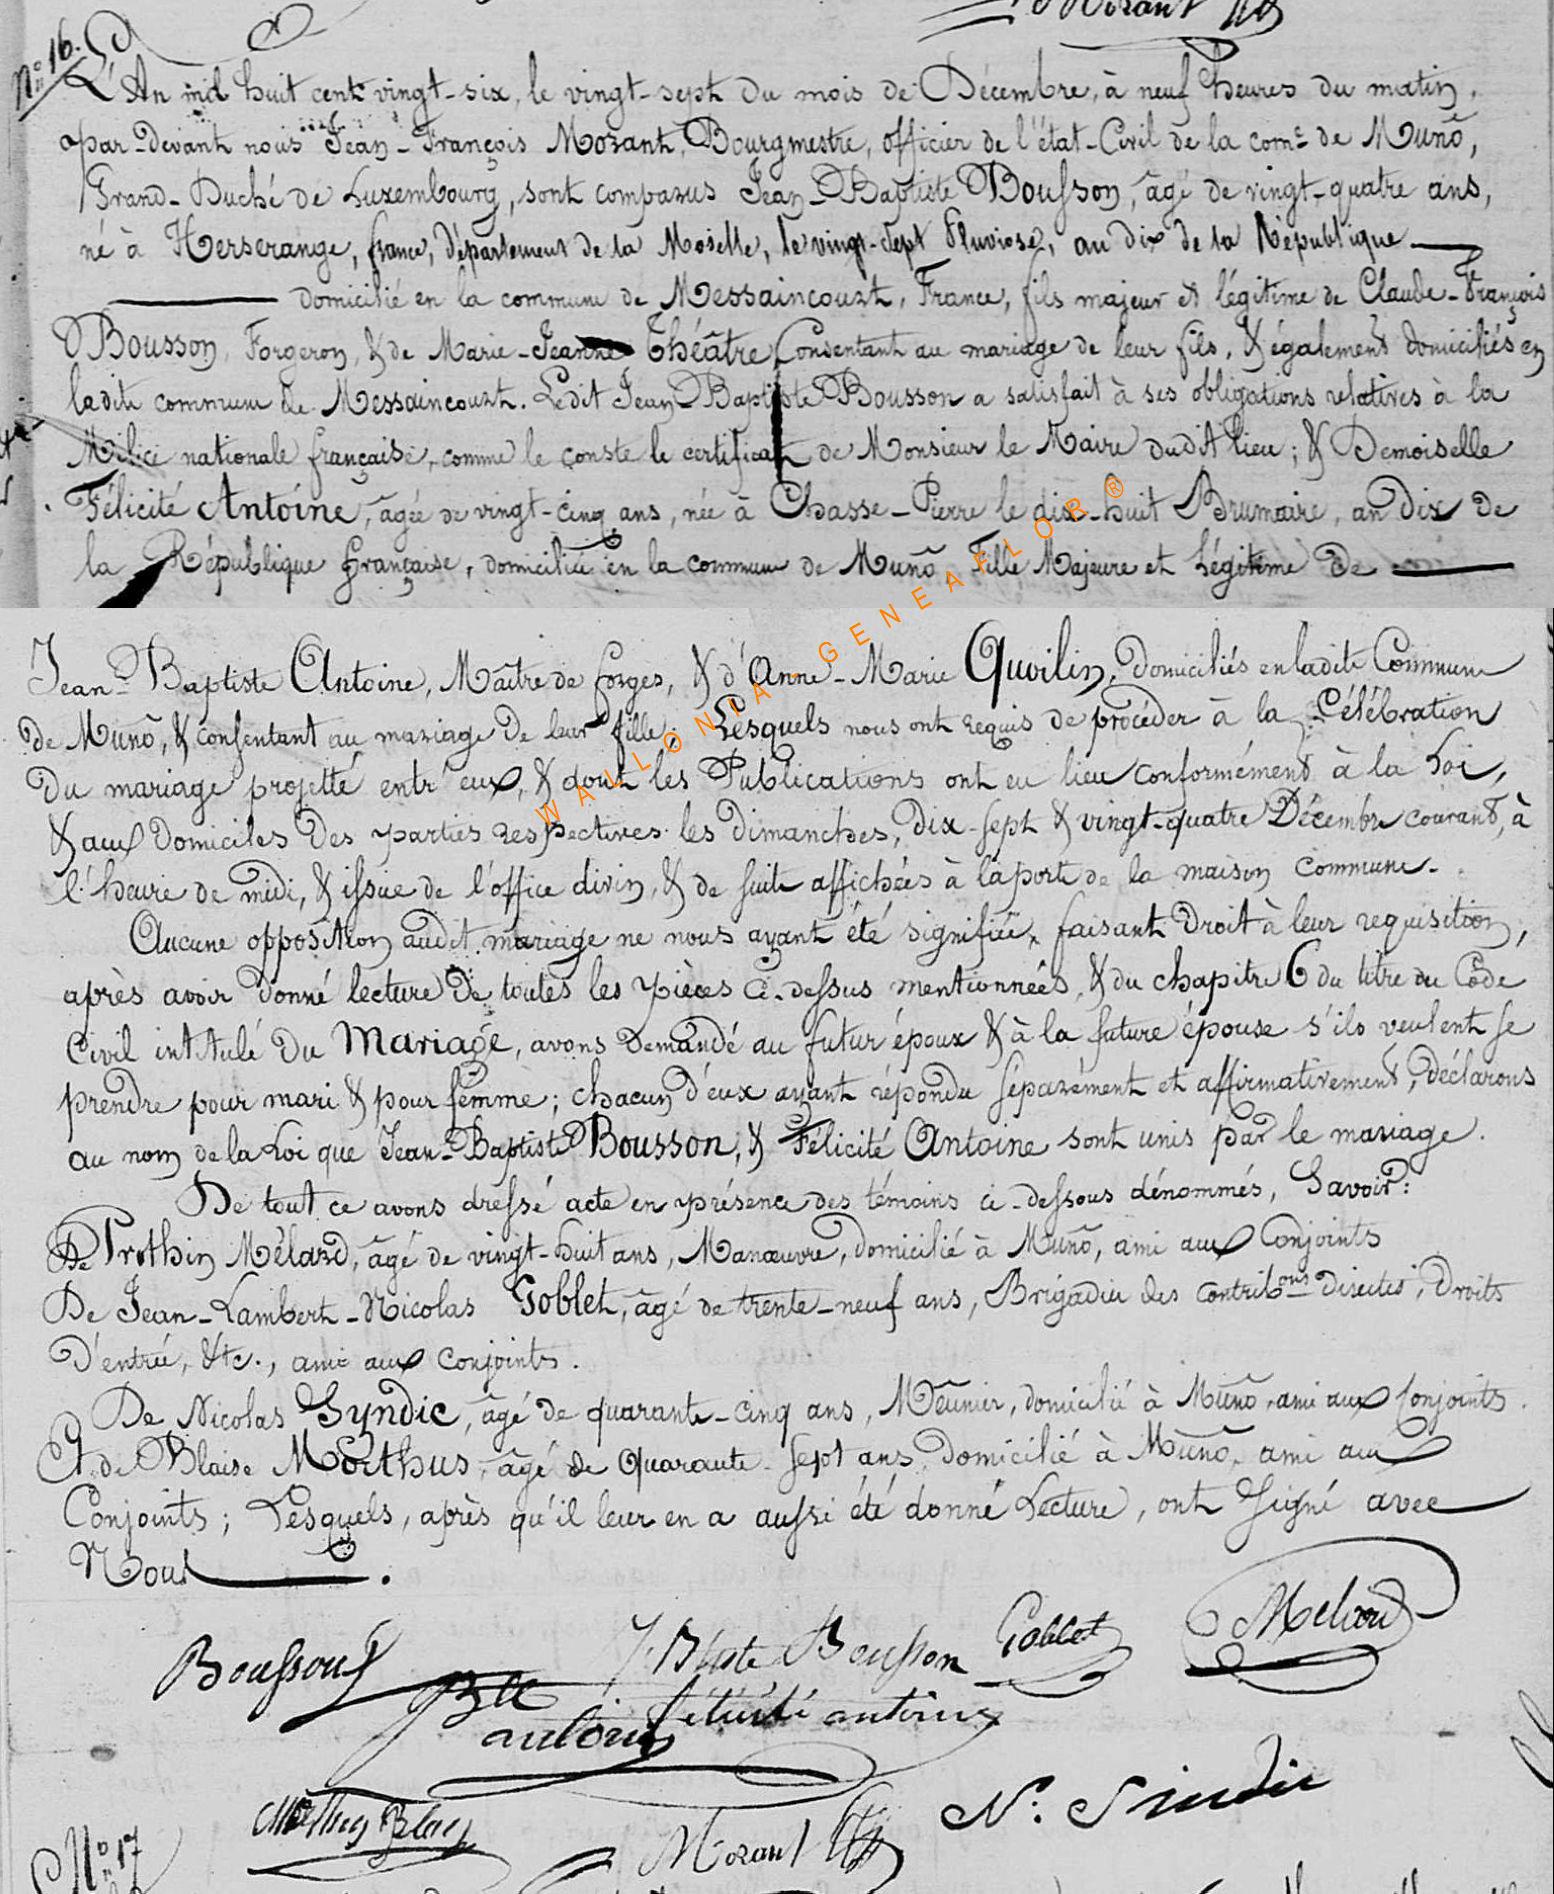 Morant
N° 16.
L'An mil huit cent vingt-six, le vingt-sept du mois de Décembre, à neuf heures du matin,
par-devant nous Jean-François Morant, Bourgmestre, officier de l'état-Civil de la com.ne de Muno,
Grand-Duché de Luxembourg, sont comparus Jean-Baptiste Bousson, âgé de vingt-quatre ans,
né à Herserange, france, département de la Moselle, le vingt-sept Pluviose, an dix de la République
domicilié en la commune de Messaincourt, France, fils majeur et légitime de Claude-François
Bousson, Forgeron, & de Marie-Jeanne Théâtre, Consentant au mariage de leur fils, & également domiciliés en
ladite commune de Messaincourt. Ledit Jean-Baptiste Bousson a satisfait à ses obligations relatives à la
Milice nationale française, comme le conste le certificat de Monsieur le Maire dudit lieu; & Demoiselle
Félicité Antoine, âgée de vingt-cinq ans, née à Chasse-Pierre le dix-huit Brumaire, an dix de
la République française, domiciliée en la commune de Muno, Fille Majeure et Légitime de
Jean-Baptiste Antoine, Maître de forges, & d'Anne-Marie Quvilin, domiciliés en ladite Commune
de Muno, & consentant au mariage de leur fille; Lesquels nous ont requis de procéder à la Célébration
du mariage projetté entr'eux, & dont les Publications ont eu lieu conformément à la Loi,
& aux domiciles des parties respectives les dimanches, dix-sept & vingt-quatre Décembre courant, à
l'heure de midi, & issue de l'office divin, & de suite affichées à la porte de la maison commune.
Aucune opposition audit mariage ne nous ayant été signifiée, faisant droit à leur requisition,
après avoir donné lecture de toutes les pièces ci-dessus mentionnées, & du chapitre 6 du titre du Code
Civil intitulé du Mariage, avons demandé au futur époux & à la future épouse s'ils veulent se
prendre pour mari & pour femme; chacun d'eux ayant répondu séparément et affirmativement, déclarons
au nom de la Loi que Jean-Baptiste Bousson, & Félicité Antoine sont unis par le mariage.
De tout ce avons dressé acte en présence des témoins ci-dessous dénommés, Savoir:
De Prothin Mélard, âgé de vingt-huit ans, Manœuvre, domicilié à Muno, ami aux Conjoints
De Jean-Lambert-Nicolas Goblet, âgé de trente-neuf ans, Brigadier des contribons directes, droits
d'entrée, &tc., ami aux conjoints.
De Nicolas Syndic, âgé de quarante-cinq ans, Meûnier, domicilié à Muno, ami aux Conjoints.
Et de Blaise Morthus, âgé de Quarante-sept ans, domicilié à Muno, ami aux
Conjoints; Lesquels, après qu'il leur en a aussi été donné Lecture, ont Signé avec
Nous.
Bousson J. Bliste Bousson Goblet Melard
Bte antoine félicité antoine
N. Sindic
Morant
N° 17
WALLONIA-GENEAFLOR®